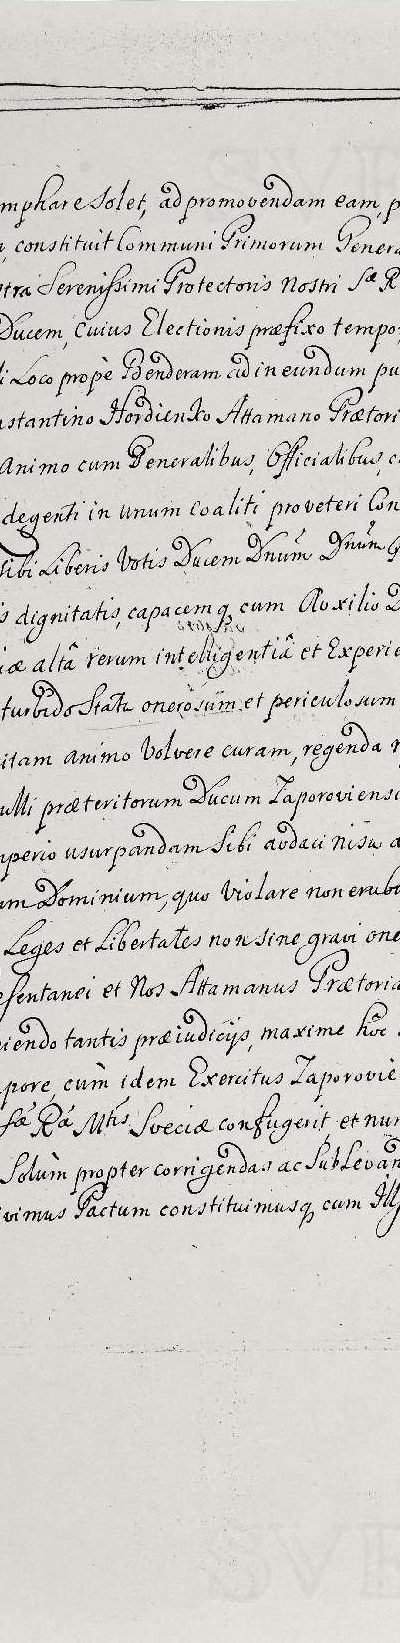 mphare Solet, ad promovendam eam, p
constituit Communi Primorum Genera
stra Serenissimi Protectoris Nostri Sæ R
Ducem, cuius Electionis præfixo tempo
Loco propè Benderam ad ineundum pu
nstantino Hordienko Attamano Prætori
Animo cum Generalibus, Officialibus, c
degenti in unum coaliti pro veteri Con
sibi Liberis Votis Ducem Dnum Dnum
s dignitatis, capacemq cum Auxilio D
iæ altâ rerum intelligentiâ et Experie
turbido Statu onerosum et periculosum
itam animo Volvere curam, regenda
ulli præteritorum Ducum Zaporoviensi
mperio usurpandam Sibi audaci nisu a
um Dominium, quo Violare non erubu
Leges et Libertates non sine gravi one
esentanei et Nos Attamanus Prætoria
piendo tantis præiudicijs, maxime hoc
mpore, cum idem Exercitus Zaporovie
Sæ Ræ Mtis Sveciæ confugerit, et nun
Solum propter corrigendas ac Sublevan
ivimus Pactum constituimusq cum Ills
SVE